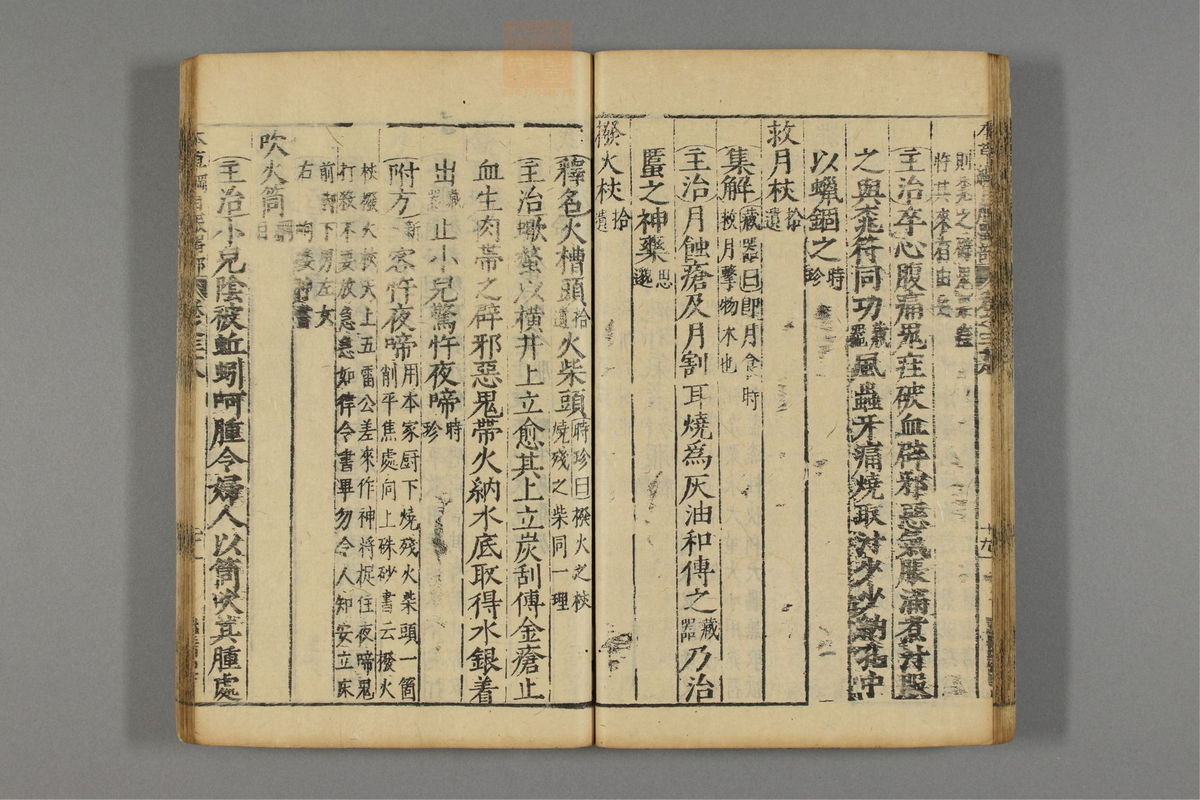 則禿之
許其來有由矣
主治卒心腹痛鬼疰破血辟邪惡氣脹滿煮汁服
之與桃符同功藏器風蟲牙痛燒取汁少少納孔中
以蠟錮之時珍
救月杖拾遺
集解藏器曰即月食時
救月擊物木也
主治月蝕瘡及月割耳燒爲灰油和傅之藏器乃治
䘌之神藥思邈
撥火杖拾遺
釋名火槽頭拾遺火柴頭時珍曰撥火之杖
燒殘之柴同一理
主治蠍螫以横井上立愈其上立炭刮傅金瘡止
血生肉帶之辟邪惡鬼帶火納水底取得水銀着
出藏器止小兒驚忤夜啼時珍
附方新客忤夜啼用本家厨下燒殘火柴頭一箇
削平焦處向上硃砂書云撥火
杖撥火杖天上五雷公差來作神將捉住夜啼鬼
打殺不要放急急如律令書畢勿令人知安立床
前脚下男左女
右
吹火筒綱目
主治小兒陰被蚯蚓呵腫令婦人以筒吹其腫處